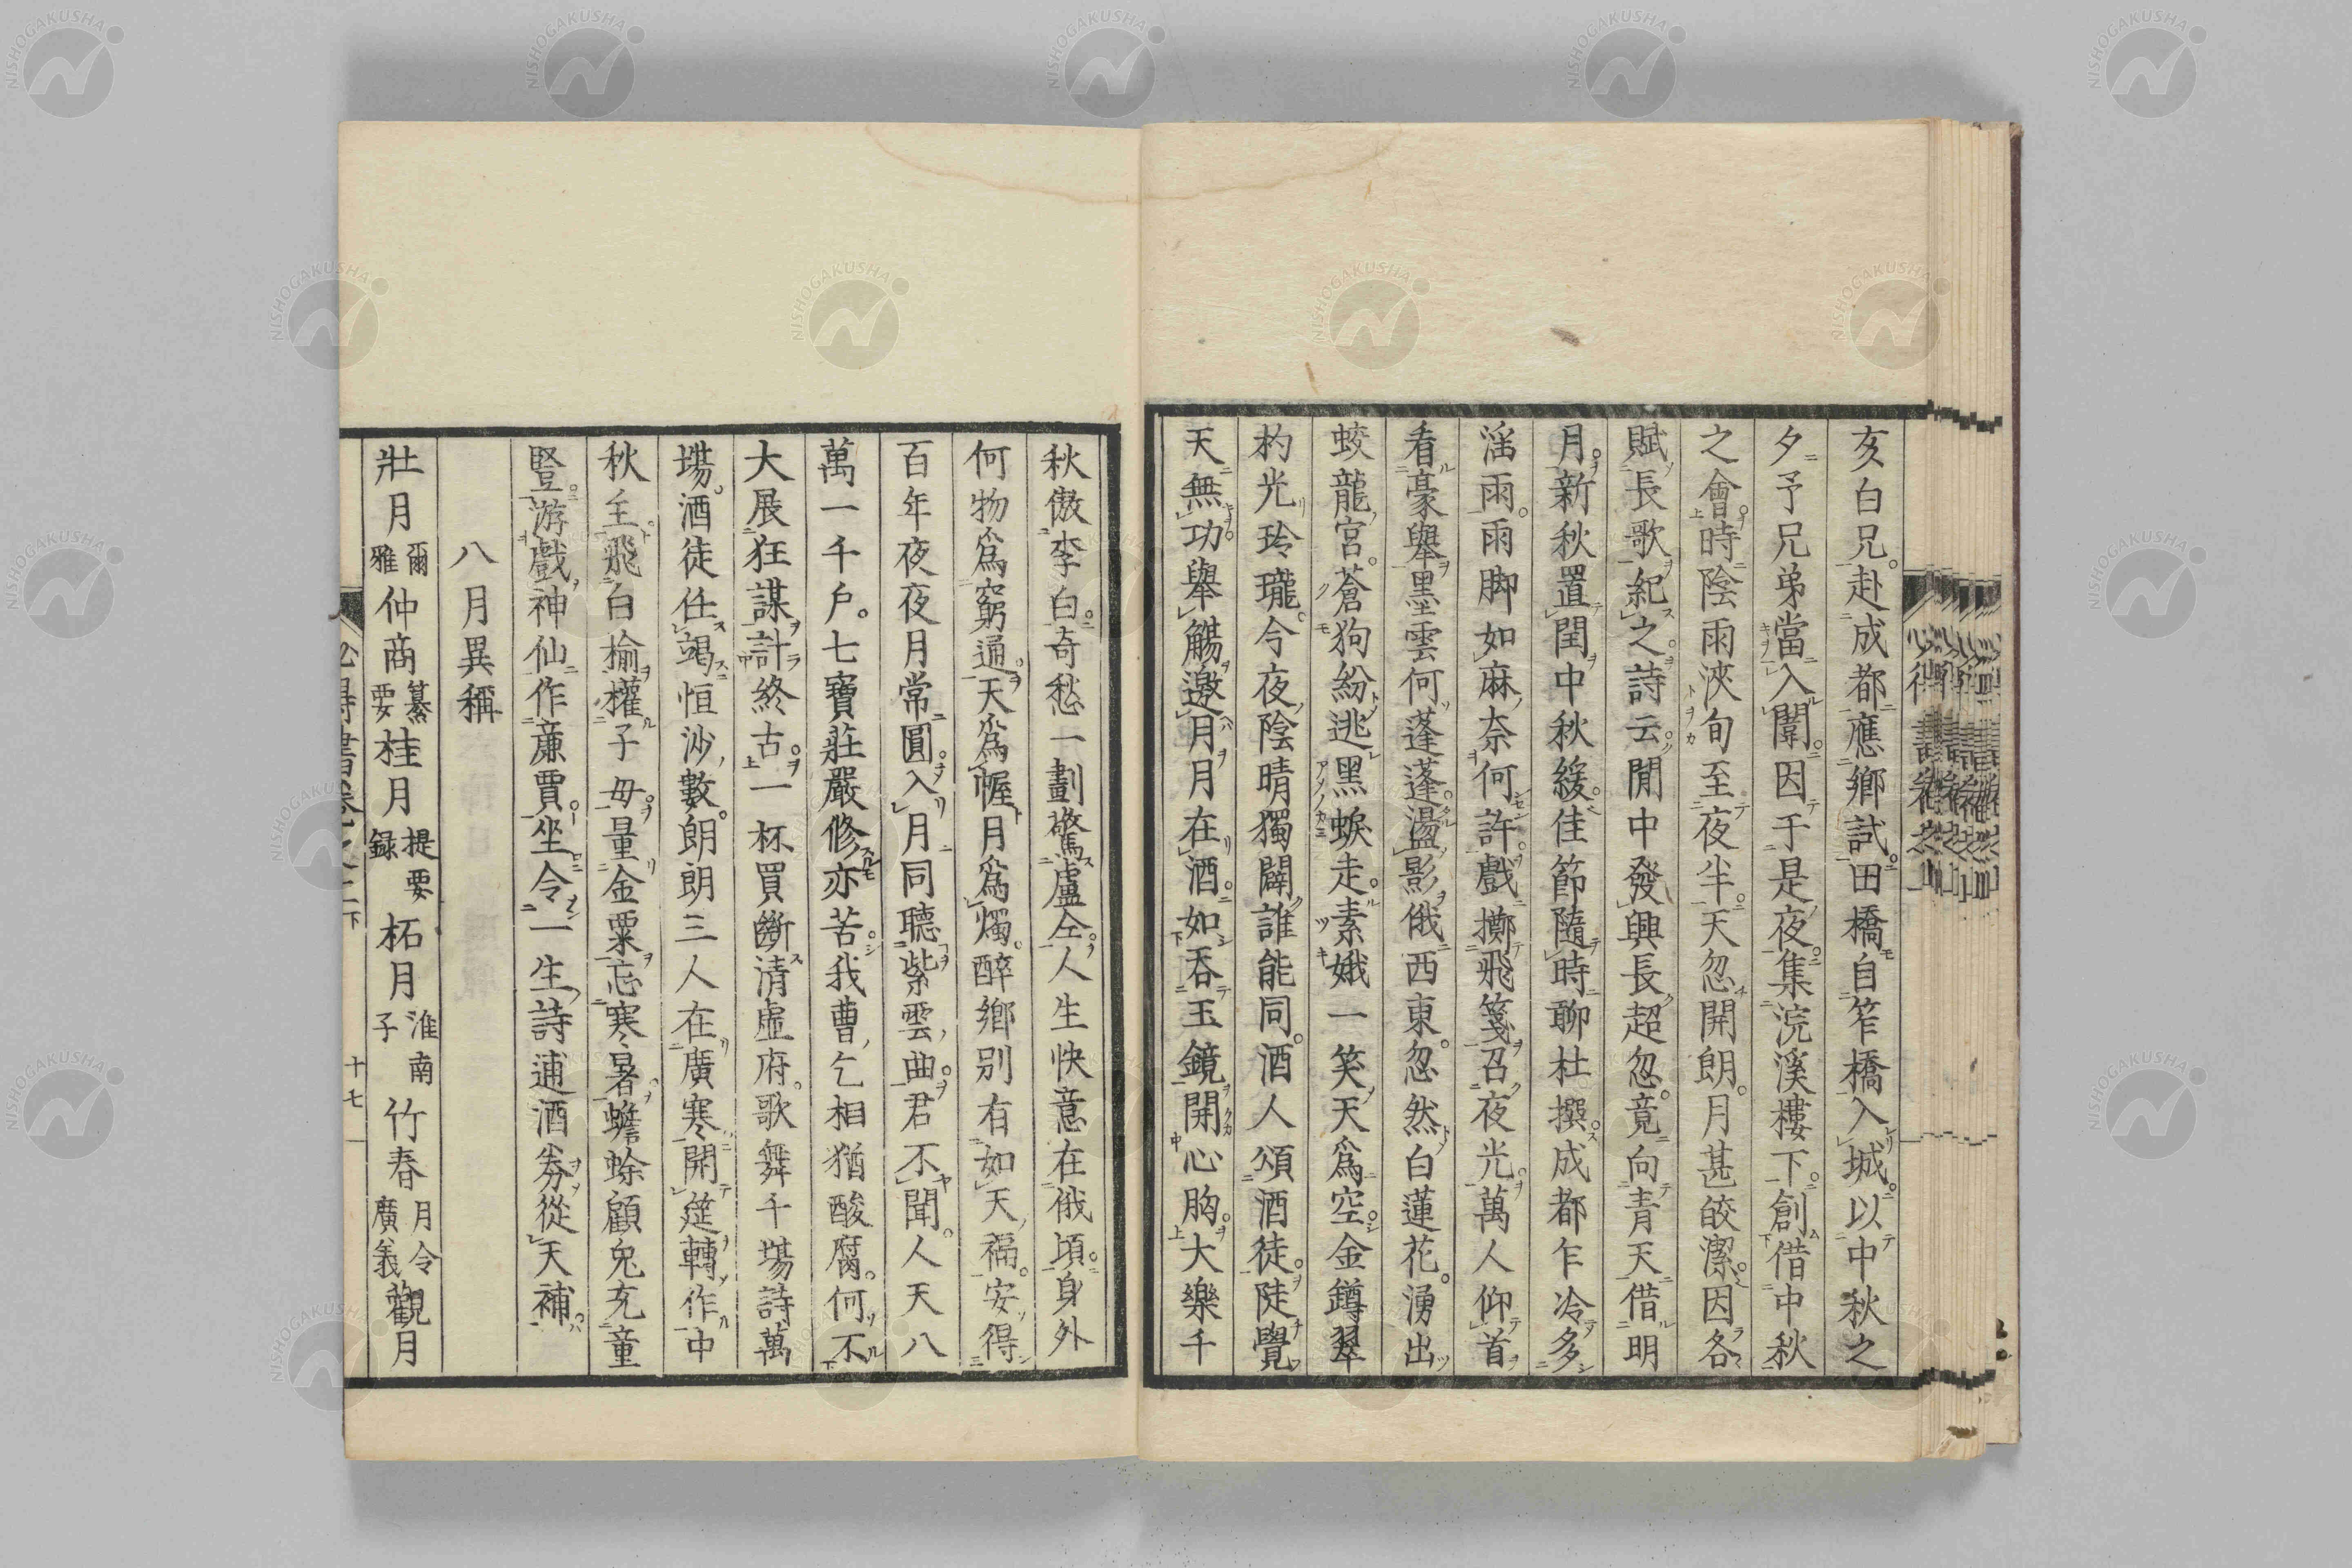 亥白兄赴成都應鄉試田橋自笮橋入城以中秋之
夕予兄弟當入闈因于是夜集浣溪樓下創借中秋
之會時陰雨浹旬至夜半天忽開朗月甚皎潔因各
賦長歌紀之詩云閒中發興長超忽竟向青天借明
月新秋置閏中秋緩佳節隨時聊杜撰成都乍冷多
淫雨雨脚如麻奈何許戲擲飛箋召夜光萬人仰首
看豪舉墨雲何蓬蓬盪影俄西東忽然白蓮花湧出
蛟龍宮蒼狗紛逃黑蜧走素娥一笑天爲空金罇翠
杓光玲瓏今夜陰晴獨闢誰能同酒人頌酒徒陡覺
天無功舉觴邀月月在酒如吞玉鏡開心胸大樂千
秋傲李白奇愁一劃驚盧仝人生快意在俄頃身外
何物爲窮通天爲幄月爲燭醉鄉別有如天福安得
百年夜夜月常圓入月同聽紫雲曲君不聞人天八
萬一千戶七寶莊嚴修亦苦我曹乞相猶酸腐何不
大展狂謀計終古一杯買斷清虛府歌舞千場詩萬
場酒徒任竭恒沙數朗朗三人在廣寒開筵轉作中
秋主飛白榆權子母量金粟忘寒暑蟾蜍顧兔充童
豎游戲神仙作廉賈坐令一生詩逋酒券從天補
八月異稱
壯月爾雅仲商纂要桂月提要錄柘月淮南子竹春月令廣義觀月
十七